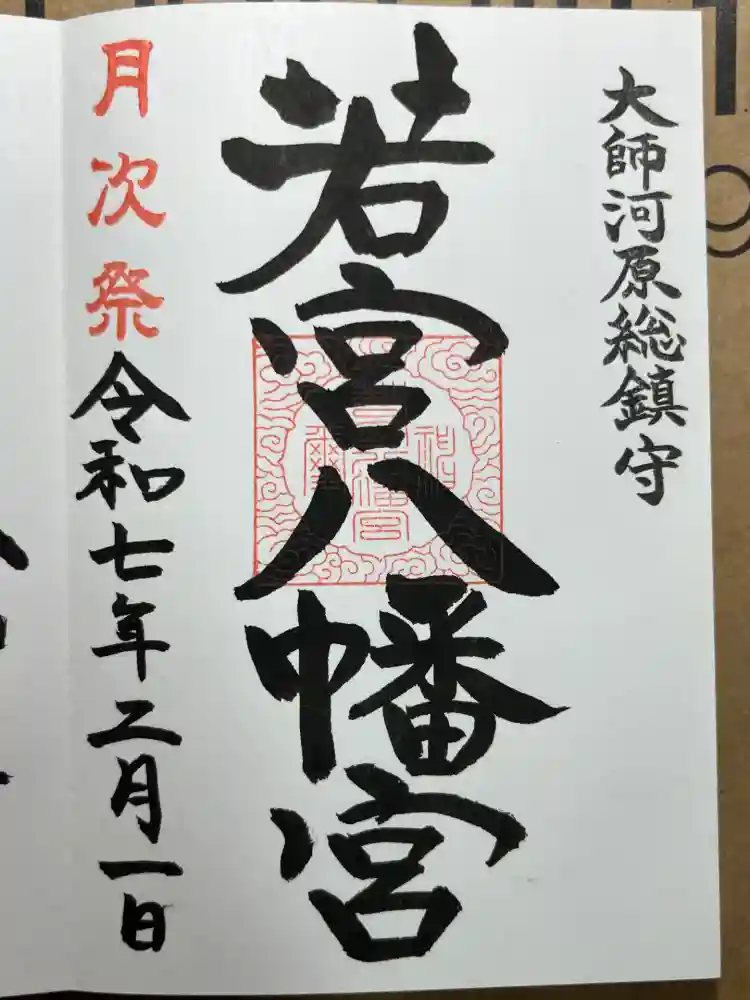 大師河原総鎮守
若宮八幡宮
月次祭
令和七年二月一日